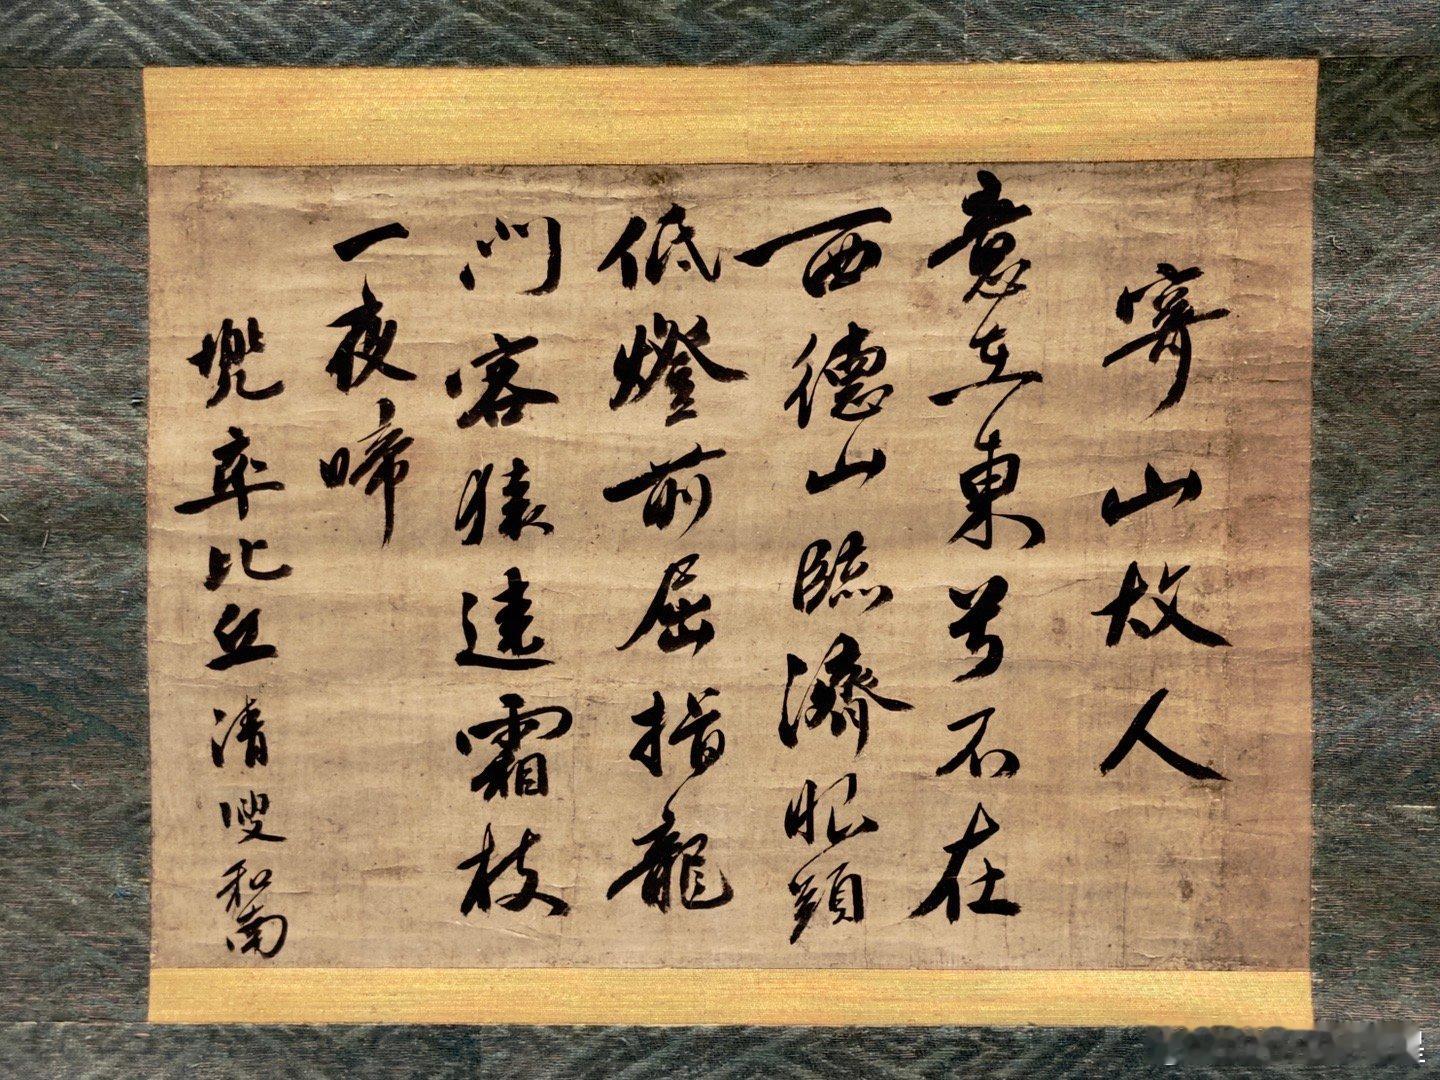 寄山故人
意在東兮不在
西德山臨濟眼頭
低燈前屈指龍
門客猿遶霜枝
一夜啼
兜率比丘清叟和南